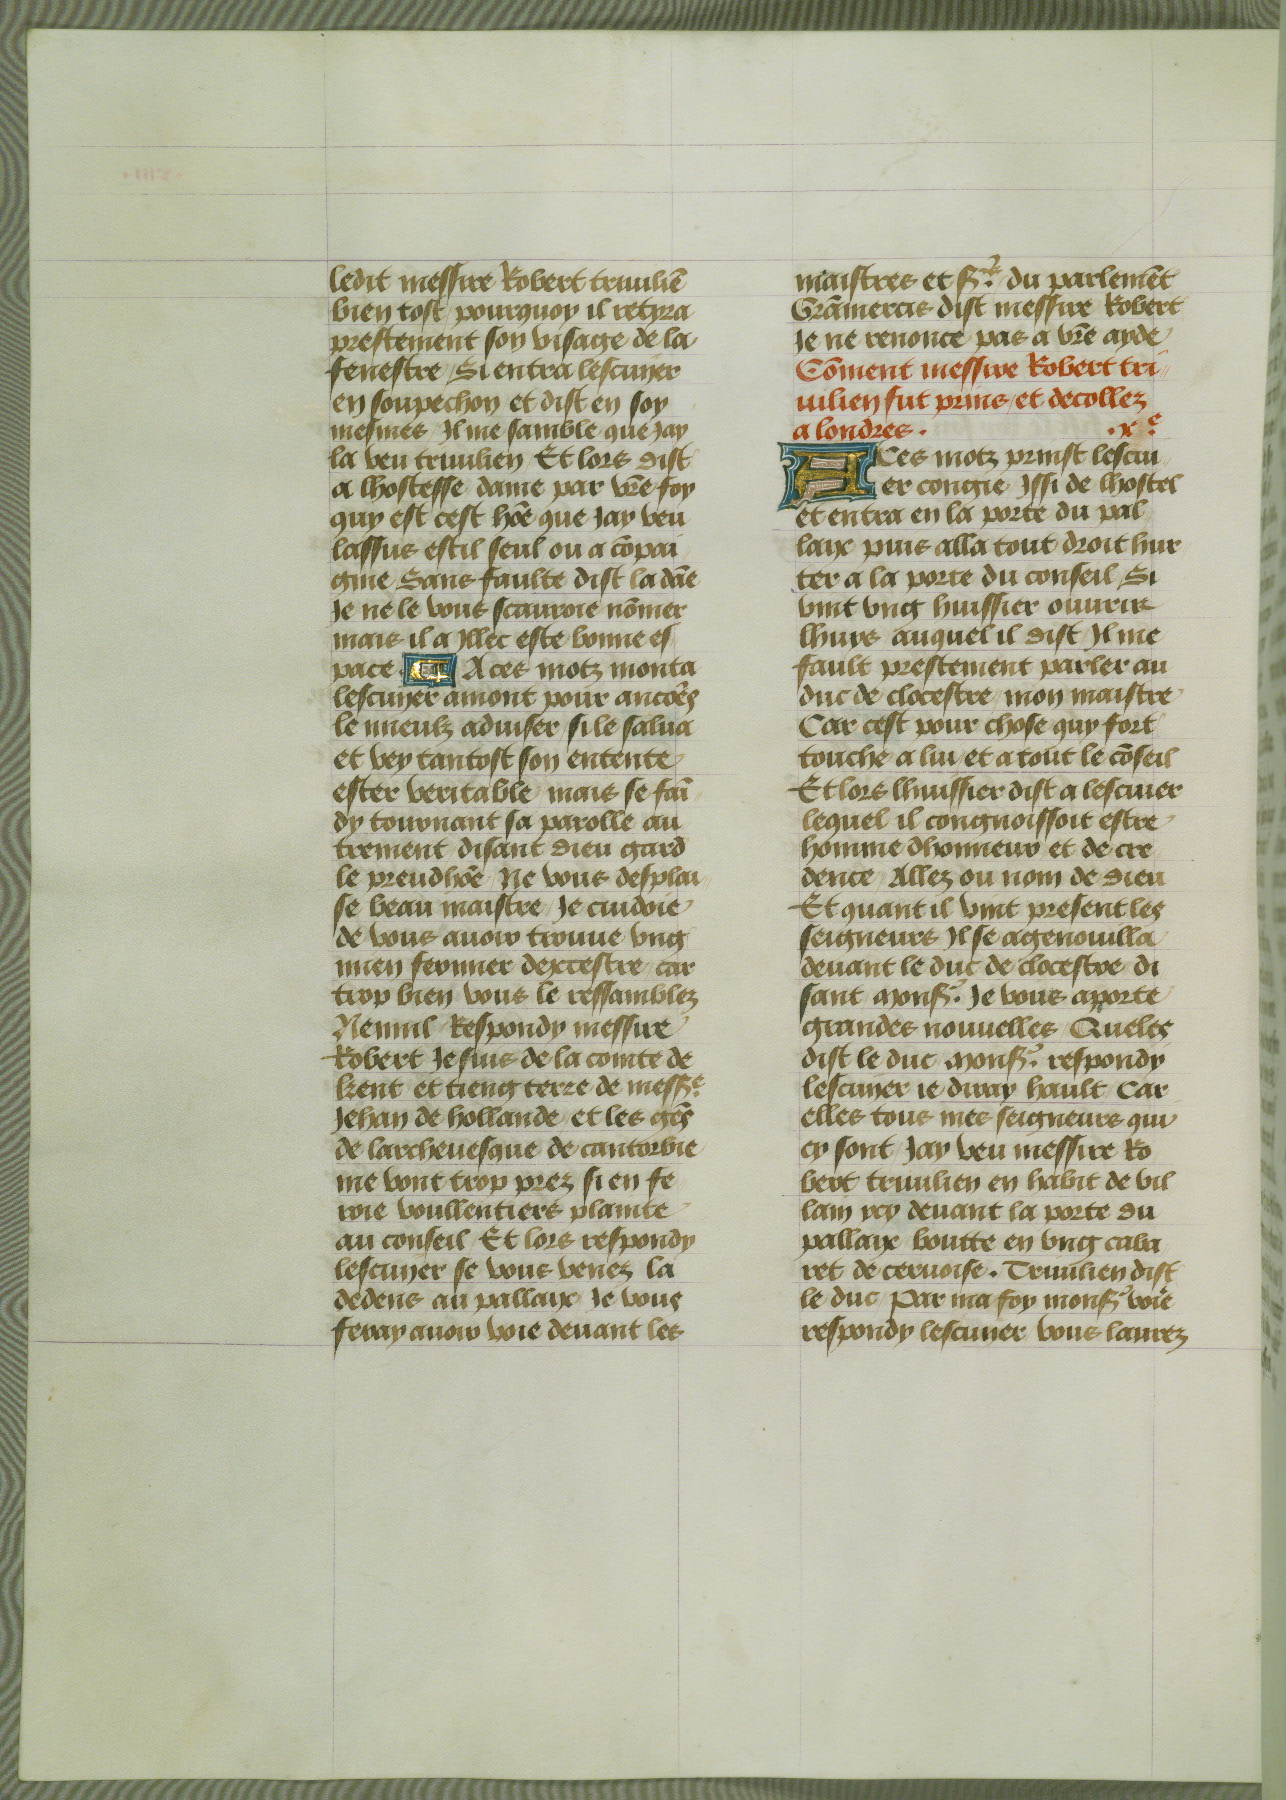 ledit messire Robert trivilie͂
bien tost pourquoy il retyra
prestement son visage de la
fenestre Si entra lescuyer
en soupechon et dist en soy
mesmes Il me samble que Jay
la veu trivilien Et lors dist
a lhostesse dame par vr̃e foy
quy est cest hõe que Jay veu
lassus estil seul ou a cõpai
gnie Sans faulte dist la dãe
Je ne le vous scauroie nõmer
mais il a Illec este bonne es
pace ¶ A ces motz monta
lescuyer amont pour
le mieulz adviser si le salua
et vey tantost son entente
ester veritable mais se fai͂
dy tournant sa parolle au
trement disant dieu gard
le preudhõe Ne vous desplai
se beau maistre Je cuidoie
de vous avoir trouve vng
mien fermier dexcestre car
trop bien vous le ressamblez
Nennil Respondy messire
Robert Je suis de la comte de
kent et tieng terre de mess.ᵉ
Jehan de hollande et les ge͂s
de larchevesque de cantorbie
me vont trop prez si en fe
roie voullentiers plainte
au conseil Et lors respondy
lescuyer se vous venez la
dedens au pallaix Je vous
feray avoir voie devant les
maistres et s.ʳˢ du parleme͂t
Grãmercis dist messire Robert
Je ne renonce pas a vr̃e ayde
Cõment messire Robert tri
vilien fut prins et decollez
a londres . .x.ᵉ
A Ces motz prinst lescui
er congie Issi de lhostel
et entra en la porte du pal
laix puis alla tout droit hur
ter a la porte du conseil Si
vint vng huissier ouvrir
lhuys auquel il dist Il me
fault prestement parler au
duc de clocestre mon maistre
Car cest pour chose quy fort
touche a lui et a tout le cõseil
Et lors lhuissier dist a lescuier
lequel il congnoissoit estre
homme dhonneur et de cre
dence Allez ou nom de dieu
Et quant il vint present les
seigneurs Il se agenouilla
devant le duc de clocestre di
sant Mons.ʳ Je vous aporte
grandes nouvelles Queles
dist le duc Mons.ʳ respondy
lescuyer ie diray hault Car
elles tous mes seigneurs qui
cy sont Jay veu messire Ro
bert trivilien en habit de vil
lain ycy devant la porte du
pallaix boutte en vng caba
ret de cervoise . Trivilien dist
le duc Par ma foy monsʳ voir̃e
respondy lescuyer vous laurez